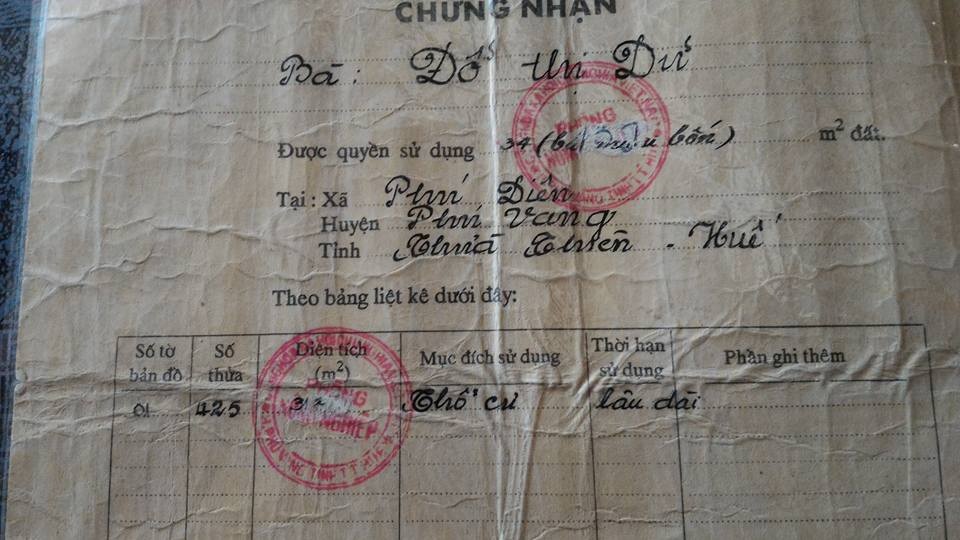 CHỨNG NHẬN
Bà: Đỗ thị Dử
Được quyền sử dụng 34 ( bốn) m² đất.
Tại: Xã Phú Diên
Huyện Phú Vang
Tỉnh Thừa Thiên - Huế
Theo bảng liệt kê dưới đây:
Số tờ bản đồ Số thửa Diện tích (m²) Mục đích sử dụng Thời hạn sử dụng Phần ghi thêm
01 425 Thổ cư lâu dài
PHÒNG
NGHIỆP